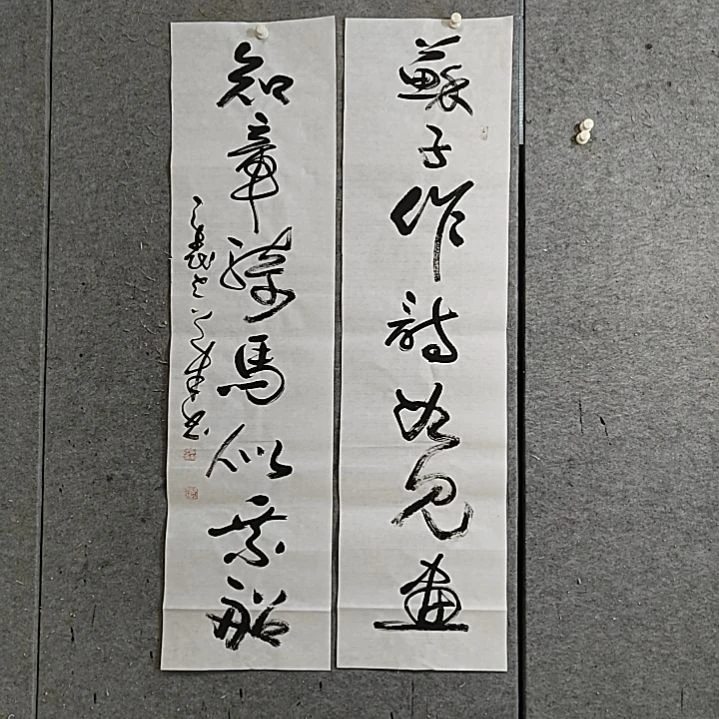 蘇子作詩如見畫
知章騎馬似乘船